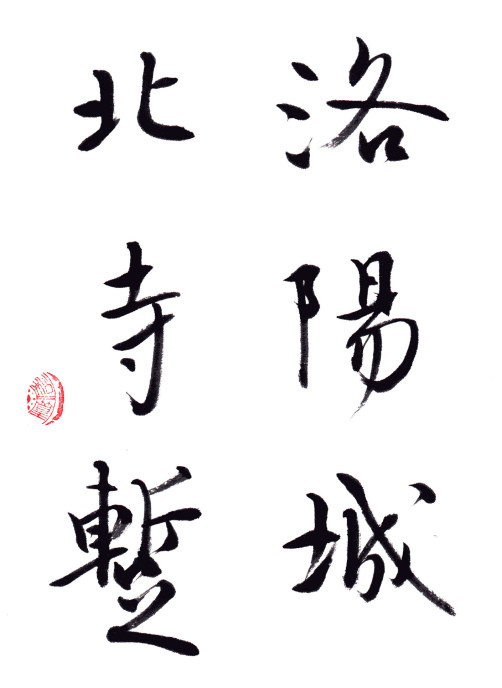 洛陽城
北寺蹔